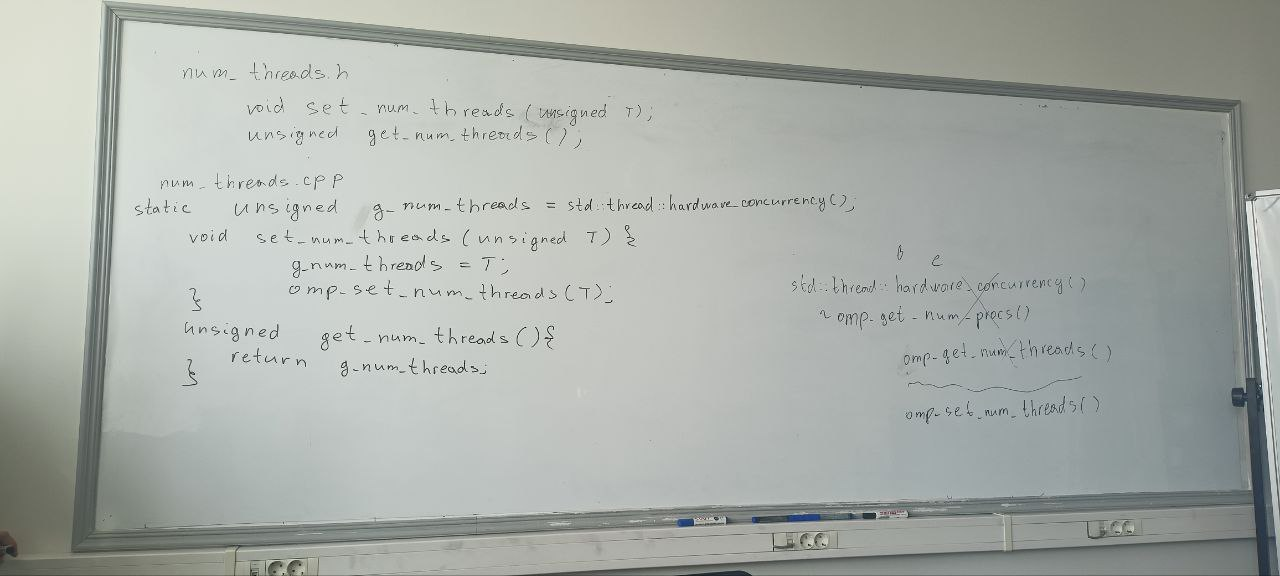 num_threads.h
void set_num_threads(unsigned T);
unsigned get_num_threads();
num_threads.cpp
static unsigned g_num_threads = std::thread::hardware_concurrency();
void set_num_threads(unsigned T) {
g_num_threads = T;
omp_set_num_threads(T);
}
unsigned get_num_threads(){
return g_num_threads;
}
std::thread::hardware_concurrency()
~ omp_get_num_procs()
omp_get_num_threads()
omp_set_num_threads()